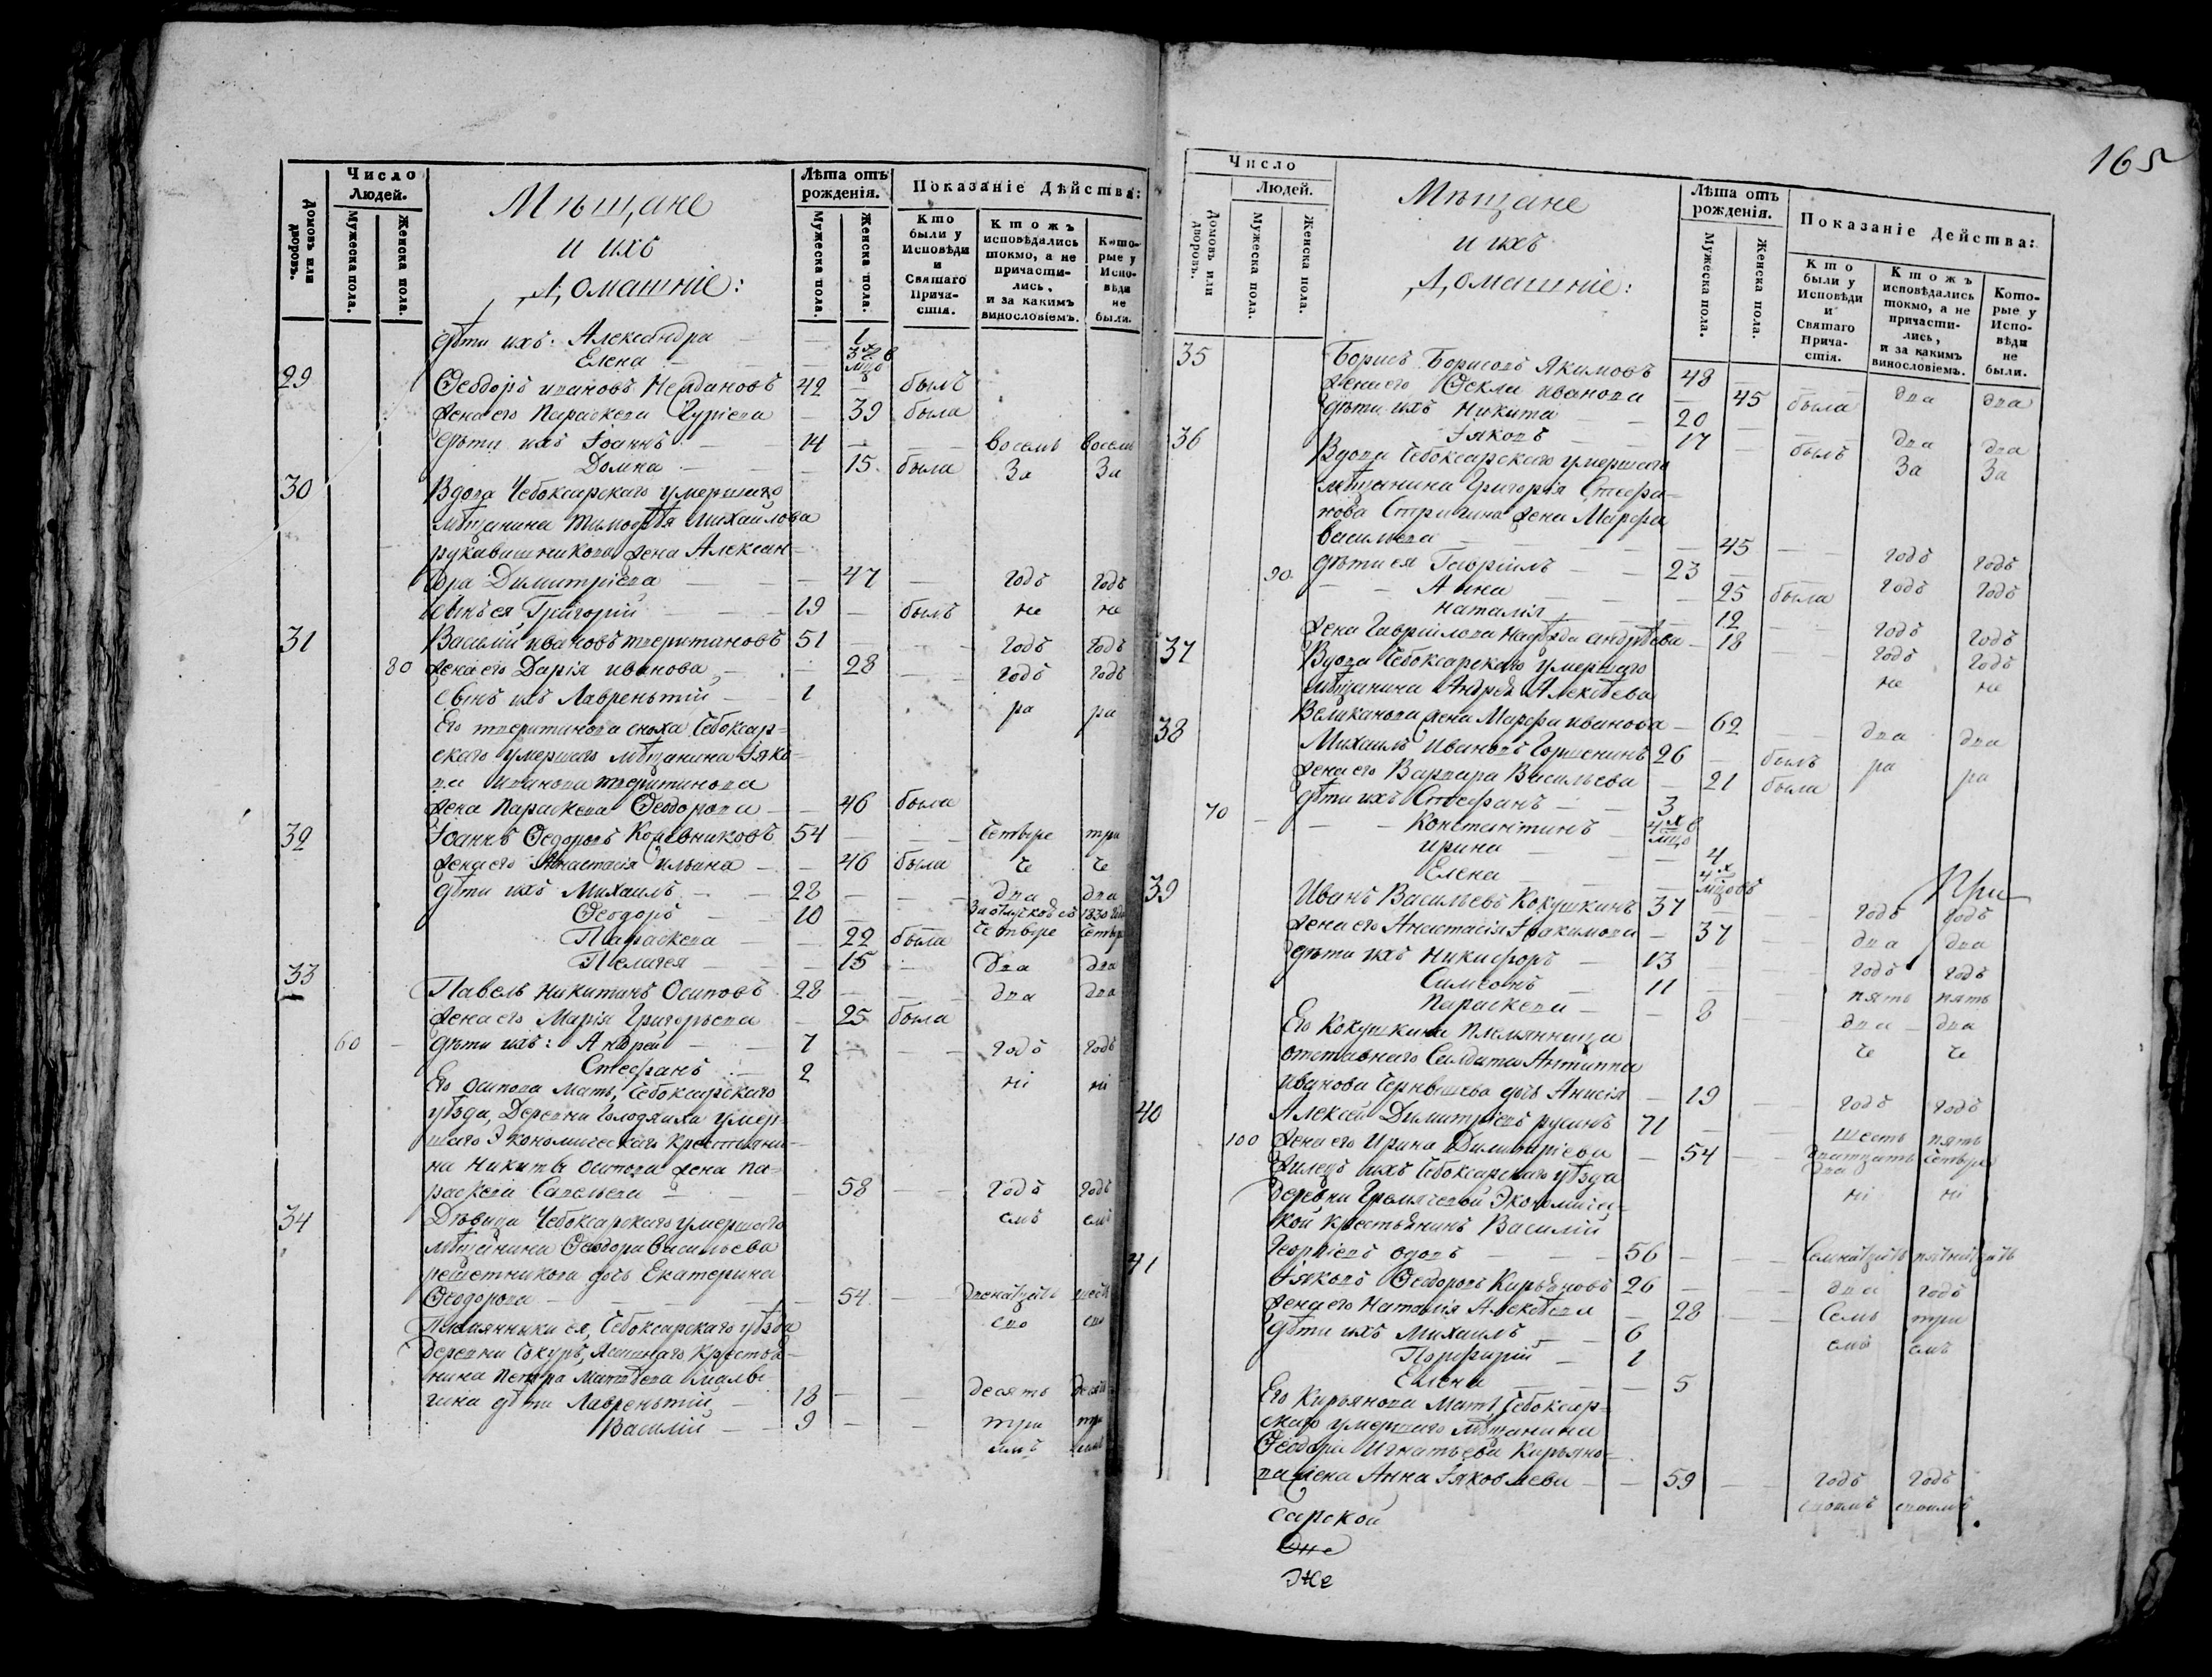 Число Людей.
Домовъ или дворовъ.
Мужеска пола.
Женска пола.
Мѣщане
и ихъ
Домашніе:
Лѣта отъ рожденія.
Мужеска пола.
Женска пола.
Показаніе Дѣйства:
Кто были у Исповѣди и Святаго Причастія.
Ктожъ исповѣдались токмо, а не причастились, и за какимъ винословіемъ.
Которые у Исповѣди не были.
дѣти ихъ: Александра 1
Елена 3х мцѣ
29 Ѳеодоръ Ивановъ 42 былъ
жена его Параскева Гуріева 39 была
дѣти ихъ Іоаннъ 14 восемь восемь
Домна 15 была За За
30 Вдова Чебоксарскаго умершаго
мѣщанина Тимоѳѣя Михайлова
рукавишникова жена Алексан-
дра Димитріева 47 годъ годъ
сынъ ея Григорій 19 былъ не не
31 Василій Ивановъ тверитиновъ 51 годъ годъ
80 жена его Дарія Иванова 28 годъ годъ
сынъ ихъ Лаврентій 1 ра ра
Его тверитинова сноха Чебоксар-
скаго умершаго мѣщанина Іяко-
ва Иванова тверитинова
жена Параскева Ѳеодорова 46 была
32 Іоаннъ Ѳеодоровъ Кожевниковъ 54 четыре три
жена его Анастасія Ильина 46 была че че
дѣти ихъ Михаилъ 28 два два
Ѳеодоръ 10 За отлучкою съ 1830 года
Параскева 22 была четыре четыре
Пелагея 15 два два
33 Павелъ Никитинъ Осиповъ 28 два два
жена его Марія Григорьева 25 была
60 дѣти ихъ: Андрей 7 годъ годъ
Стефанъ 2 ні ні
Его Осипова Мать, Чебоксарскаго
уѣзда, Деревни Голодяиха умер-
шаго Экономическаго Крестьяни-
на Никиты Осипова жена Па-
раскева Савельева 58 годъ годъ
34 Дѣвица Чебоксарскаго умершаго емъ емъ
мѣщанина Ѳеодора Васильева
решетникова дочь Екатерина
Ѳеодорова 54 двенадцать шесть
Племянники ея, Чебоксарскаго уѣзда сво сво
деревни Сокуръ, Крестья-
нина Петра Матвѣева
дѣти Лаврентій 18 десять десять
Василій 9 три три
имъ имъ
165
Число
Людей.
Домовъ или дворовъ.
Мужеска пола.
Женска пола.
Мѣщане
и ихъ
Домашніе:
Лѣта отъ рожденія.
Мужеска пола.
Женска пола.
Показаніе Дѣйства:
Кто были у Исповѣди и Святаго Причастія.
Ктожъ исповѣдались токмо, а не причастились, и за какимъ винословіемъ.
Которые у Исповѣди не были.
35 Борисъ Борисовъ Якимовъ 48 два два
жена его Ѳекла Иванова 45 была
дѣти ихъ Никита 20 два два
Іяковъ 17 былъ
36 Вдова Чебоксарскаго умершаго За За
мѣщанина Григорія Стефа-
нова Стригина жена Марфа
Васильева 45 годъ годъ
90 дѣти ея Гавріилъ 23 годъ годъ
Анна 25 была
Наталія 12 годъ годъ
жена Гавріилова Надѣжда Андрѣева 18 годъ годъ
37 Вдова Чебоксарскаго умершаго не не
мѣщанина Андрея Алексѣева
Великанова жена Марфа Иванова 62 два два
38 Михаилъ Ивановъ Горшенинъ 26 былъ ра ра
жена его Варвара Васильева 21 была
70 дѣти ихъ Стефанъ 3
Константинъ 4х мцѣ
Ирина 4
Елена 4х мцовъ
При
39 Иванъ Васильевъ Кокушкинъ 37 годъ годъ
жена его Анастасія Іоакимова 37 два два
дѣти ихъ Никифоръ 13 годъ годъ
Симеонъ 11 пять пять
Параскева 8 два два
Его Кокушкина племянница че че
отставнаго Салдата Антиппа
Иванова Чернышева дочь Анисія 19 годъ годъ
40 Алексѣй Димитріевъ русинъ 71 шесть пять
100 жена его Ирина Димитріева 54 двадцать два четыре
жилецъ ихъ Чебоксарскаго уѣзда ні ні
деревни Гремячевой Экономичес-
кой крестьянинъ Василій
Георгіевъ 56 семнадцать пятнадцать
41 Іяковъ Ѳеодоровъ Кирьяновъ 26 два годъ
жена его Наталія Алексѣева 28 семь три
дѣти ихъ Михаилъ 6 емъ емъ
Порфирій 1
Елена 5
Его Кирьянова Мать Чебоксар-
скаго умершаго мѣщанина
Ѳеодора Игнатьева Кирьяно-
ва жена Анна Іяковлева 59 годъ годъ
сарской
же